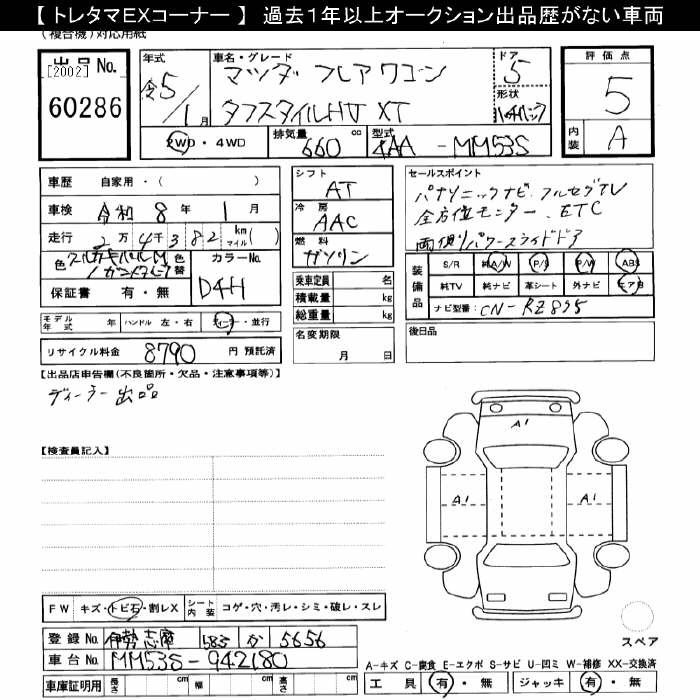 【 トレタマEXコーナー 】 過去1年以上オークション出品歴がない車両
(複合機)対応用紙
出品No.
[2002]
60286
年式
令5/1月
車名・グレード
マツダ フレアワゴン
タフスタイルHV XT
ドア
5
形状
ハッチバック
評価点
5
内装
A
2WD・4WD
排気量
660 cc
型式
4AA-MM53S
車歴 自家用・( )
車検 令和 8年 1月
走行 2万4千382 km マイル( )
色
色替
カラーNo.
D4H
保証書 有・無
モデル年式 年
ハンドル 左・右
ディーラー・並行
リサイクル料金 8790 円 預託済
シフト
AT
冷房
AAC
燃料
ガソリン
乗車定員 名
積載量 kg
総重量 kg
名変期限
月 日
セールスポイント
パナソニックナビ・フルセグTV
全方位モニター、ETC
両側パワースライドドア
装備品
S/R 純A/W P/S P/W ABS
純TV 純ナビ 革シート 外ナビ エアB
ナビ型番: CN-RZ895
後日品
【出品店申告欄(不良箇所・欠品・注意事項等)】
ディーラー出品
【検査員記入】
A1
A1
A1
FW キズ・トビ石・割レX
シート内装 コゲ・穴・汚レ・シミ・破レ・スレ
スペア
登録No. 伊勢志摩 585 か 5656
車台No. MM53S-942180
車庫証明用 長さ cm 幅 cm 高さ cm
A-キズ C-腐食 E-エクボ S-サビ U-凹ミ W-補修 XX-交換済
工具 有・無 ジャッキ 有・無